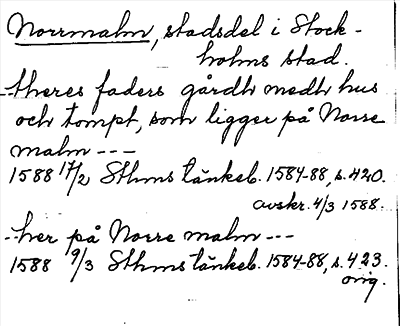 Norrmalm, stadsdel i Stock-
holms stad.
--theres faders gårdh medh hus
och tompt, som ligger på Norre
malm ---
1588 17/2 Sthms tänkeb. 1584-88, s. 420.
avskr. 4/3 1588.
--her på Norre malm ---
1588 9/3 Sthms tänkeb. 1584-88, s. 423.
orig.